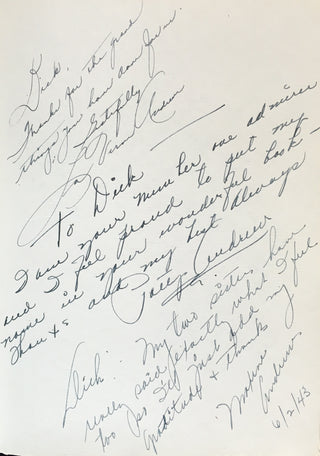 Dick,
Thanks for the grand
things you have done for us.
Gratefully
La Verne Andrews
To Dick
I am your number one admirer
and I feel proud to put my
name in your wonderful book –
Thanks and my best Always
Patty Andrews
Dick: My two sisters have
really said exactly what I feel
too so I'll just add my
gratitude & thanks
Maxene
Andrews
6/2/43